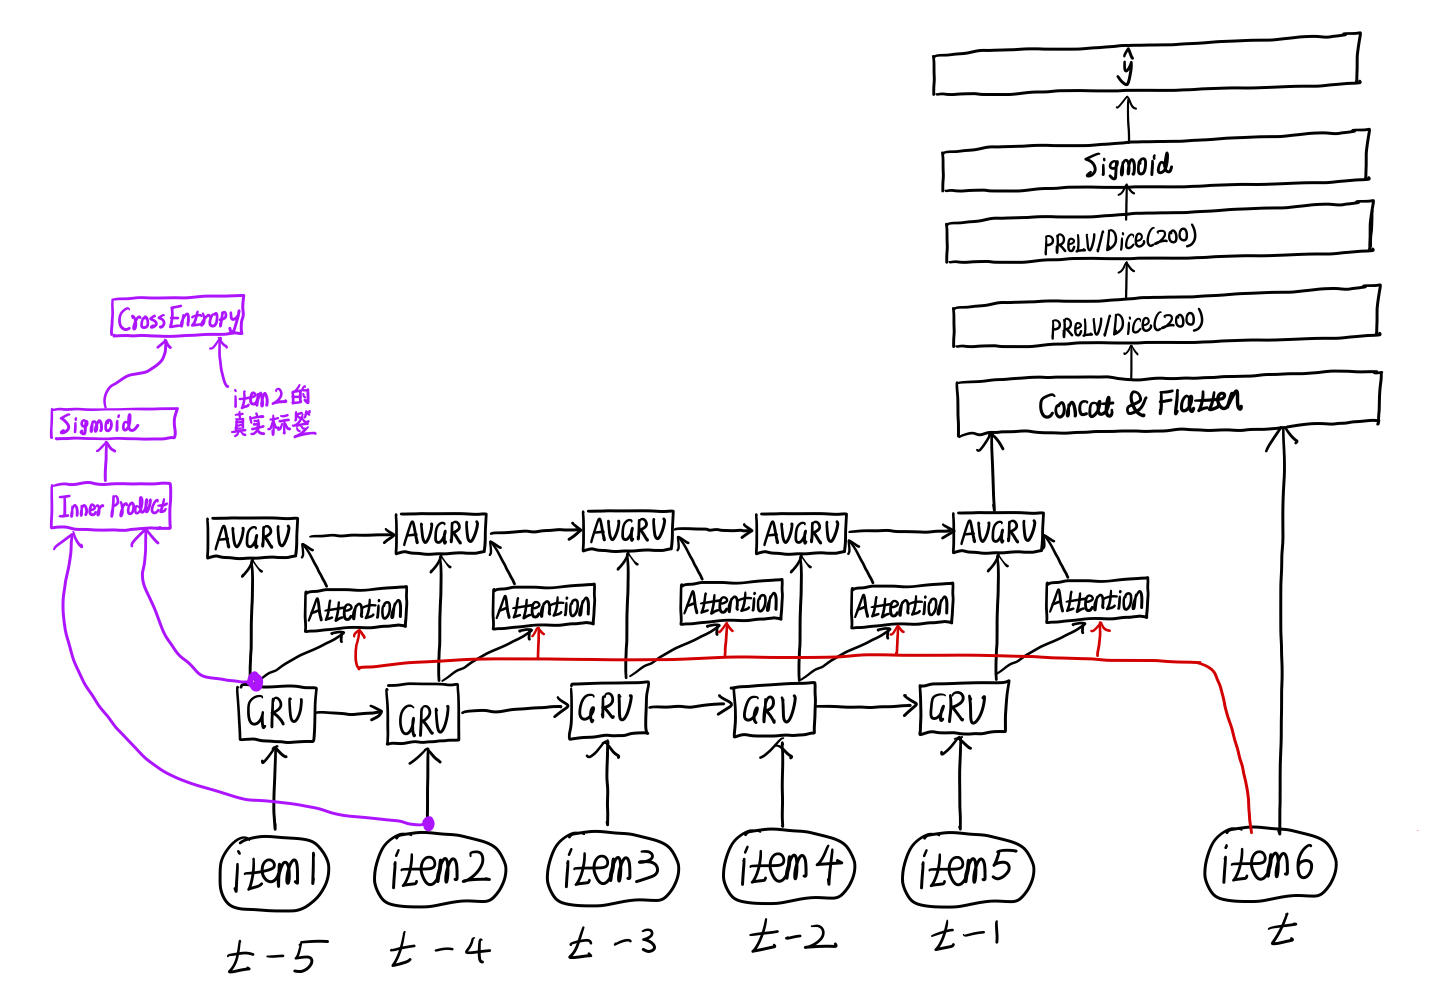 ŷ
Sigmoid
PReLU/Dice(200)
PReLU/Dice(200)
Concat & Flatten
Cross Entropy
item2的
真实标签
Sigmoid
Inner Product
AUGRU AUGRU AUGRU AUGRU AUGRU
Attention Attention Attention Attention Attention
GRU GRU GRU GRU GRU
item1 item2 item3 item4 item5 item6
t-5 t-4 t-3 t-2 t-1 t